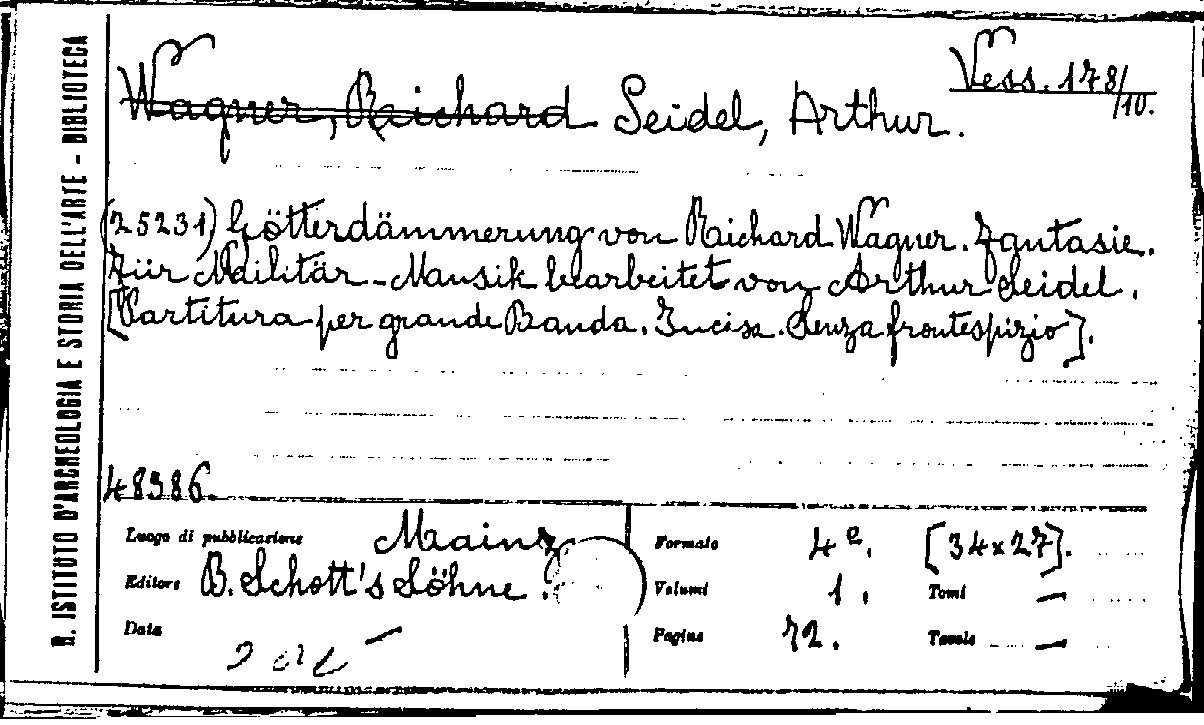 R. ISTITUTO D'ARCHEOLOGIA E STORIA DELL'ARTE - BIBLIOTECA
Vess. 178/10.
Wagner, Richard Seidel, Arthur.
(25231) Götterdämmerung von Richard Wagner. Fantasie.
Für Militär-Mausik bearbeitet von Arthur Seidel.
[Partitura per grande Banda. Incisa. Senza frontespizio].
48386.
Luogo di pubblicazione Mainz
Editore B. Schott's Söhne.
Data —
Formato 4º. [34x27].
Volumi 1. Tomi —
Pagine 72. Tavole —